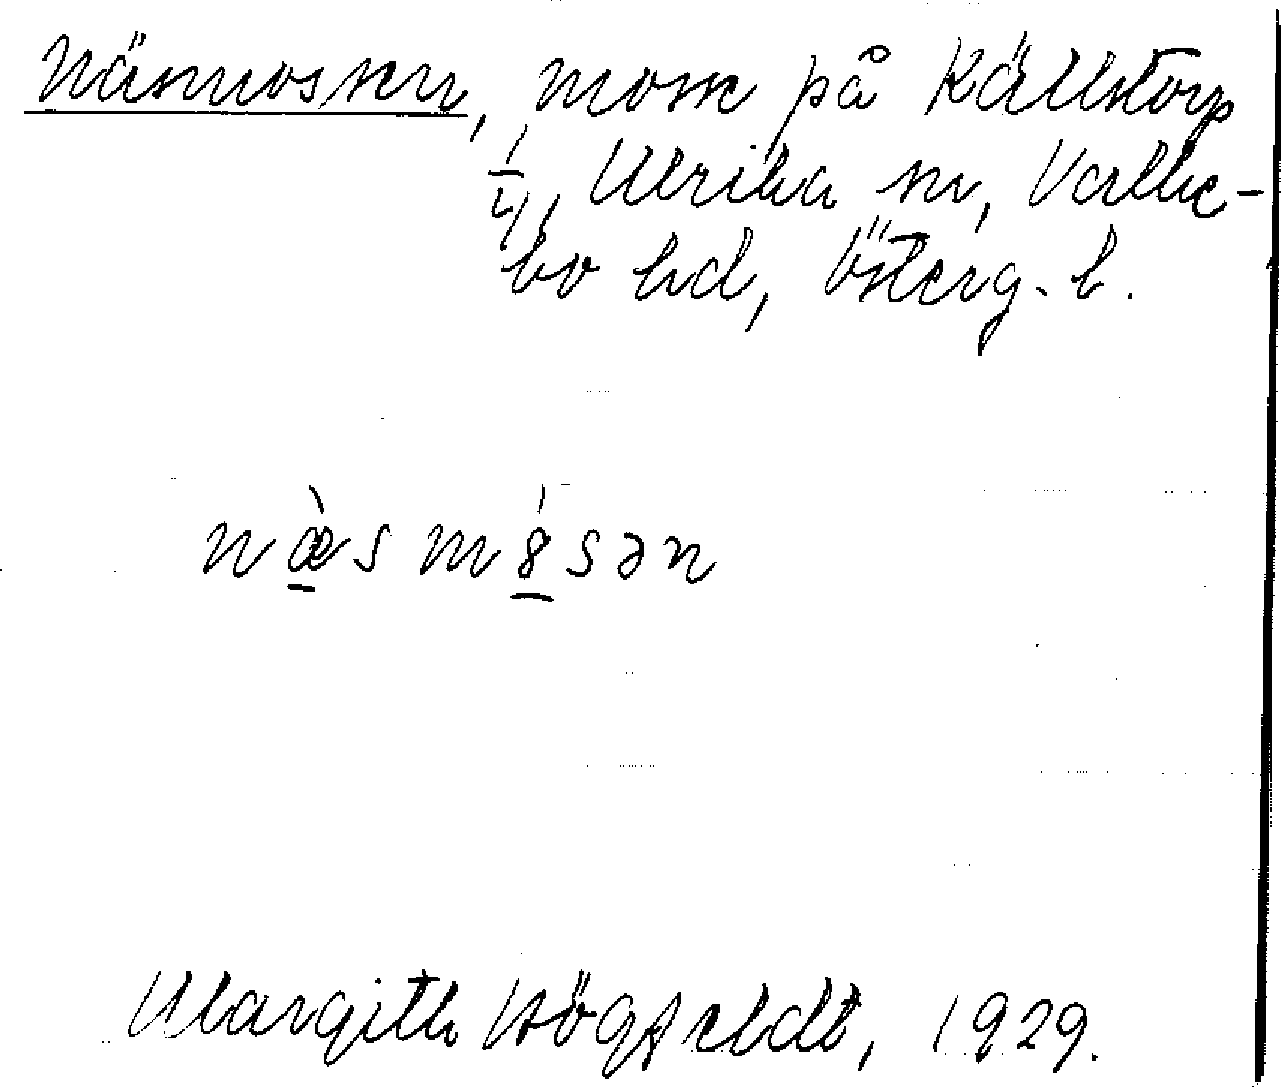 Näsmossen, mosse på Källstorp
1/4, Ulrika sn, Valke-
bo hd, Österg. l.
næ̠̀sm8̠́sən
Margith Högfeldt, 1929.